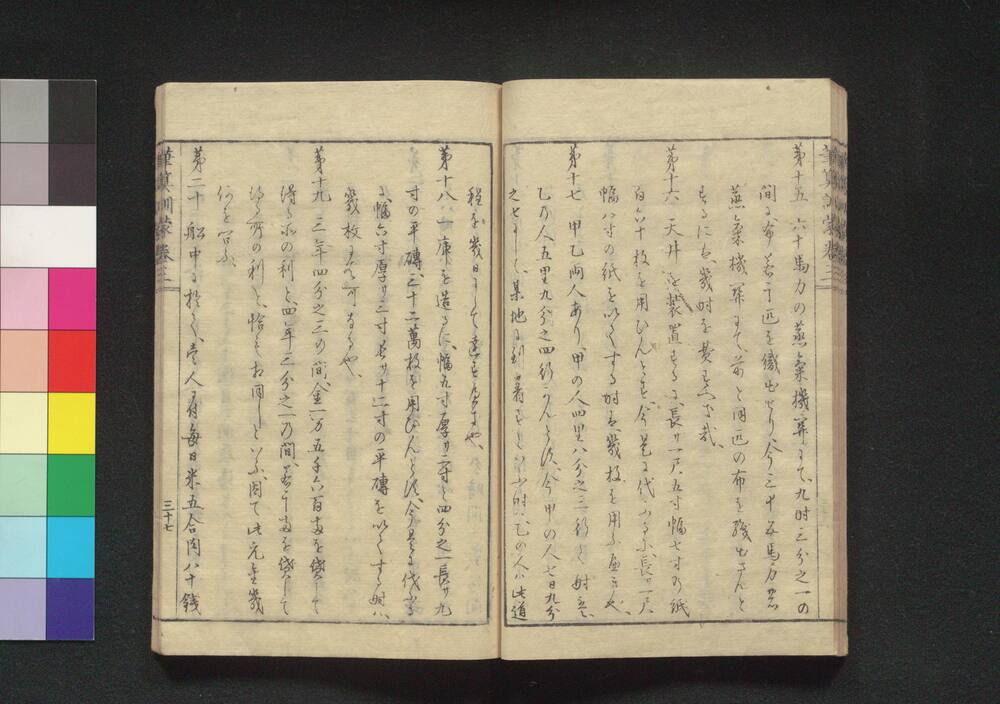 第十五 六十馬力の蒸氣機関にて、九時三分之一の
間に布若干匹を織出せり今三十五馬力の
蒸氣機関にて、前と同匹の布を織出さんと
するには、幾時を費すべき哉、
第十六 天井を装置するに、長サ一尺五寸幅七寸の紙
百六十枚を用ひんとす、今是に代ふるに、長サ一尺
幅八寸の紙を以てする時は、幾枚を用ふ可きや、
第十七 甲乙両人あり、甲の人四里八分之三行く時は、
乙の人五里九分之四行くと云ふ、今甲の人七日九分
之七にして、某地に到着すといふ時は乙の人は此道
程を幾日にして達す可きや、
第十八 一庫を造るに、幅五寸厚サ二寸と四分之一長サ九
寸の平磚、三十二萬枚を用ひんとす、今是に代ふる
に、幅六寸厚サ三寸長サ十二寸の平磚を以てする時は、
幾枚にて可なるや、
第十九 三年四分之三の間、金一万五千六百両を貸して
得る所の利と、四年三分之一の間、若干両を貸して
得る所の利と、恰も相同しといふ、因て此元金幾
何を問ふ、
第二十 船中に於て、壱人に付毎日米五合因八十錢
筆算訓蒙 巻三
三十七